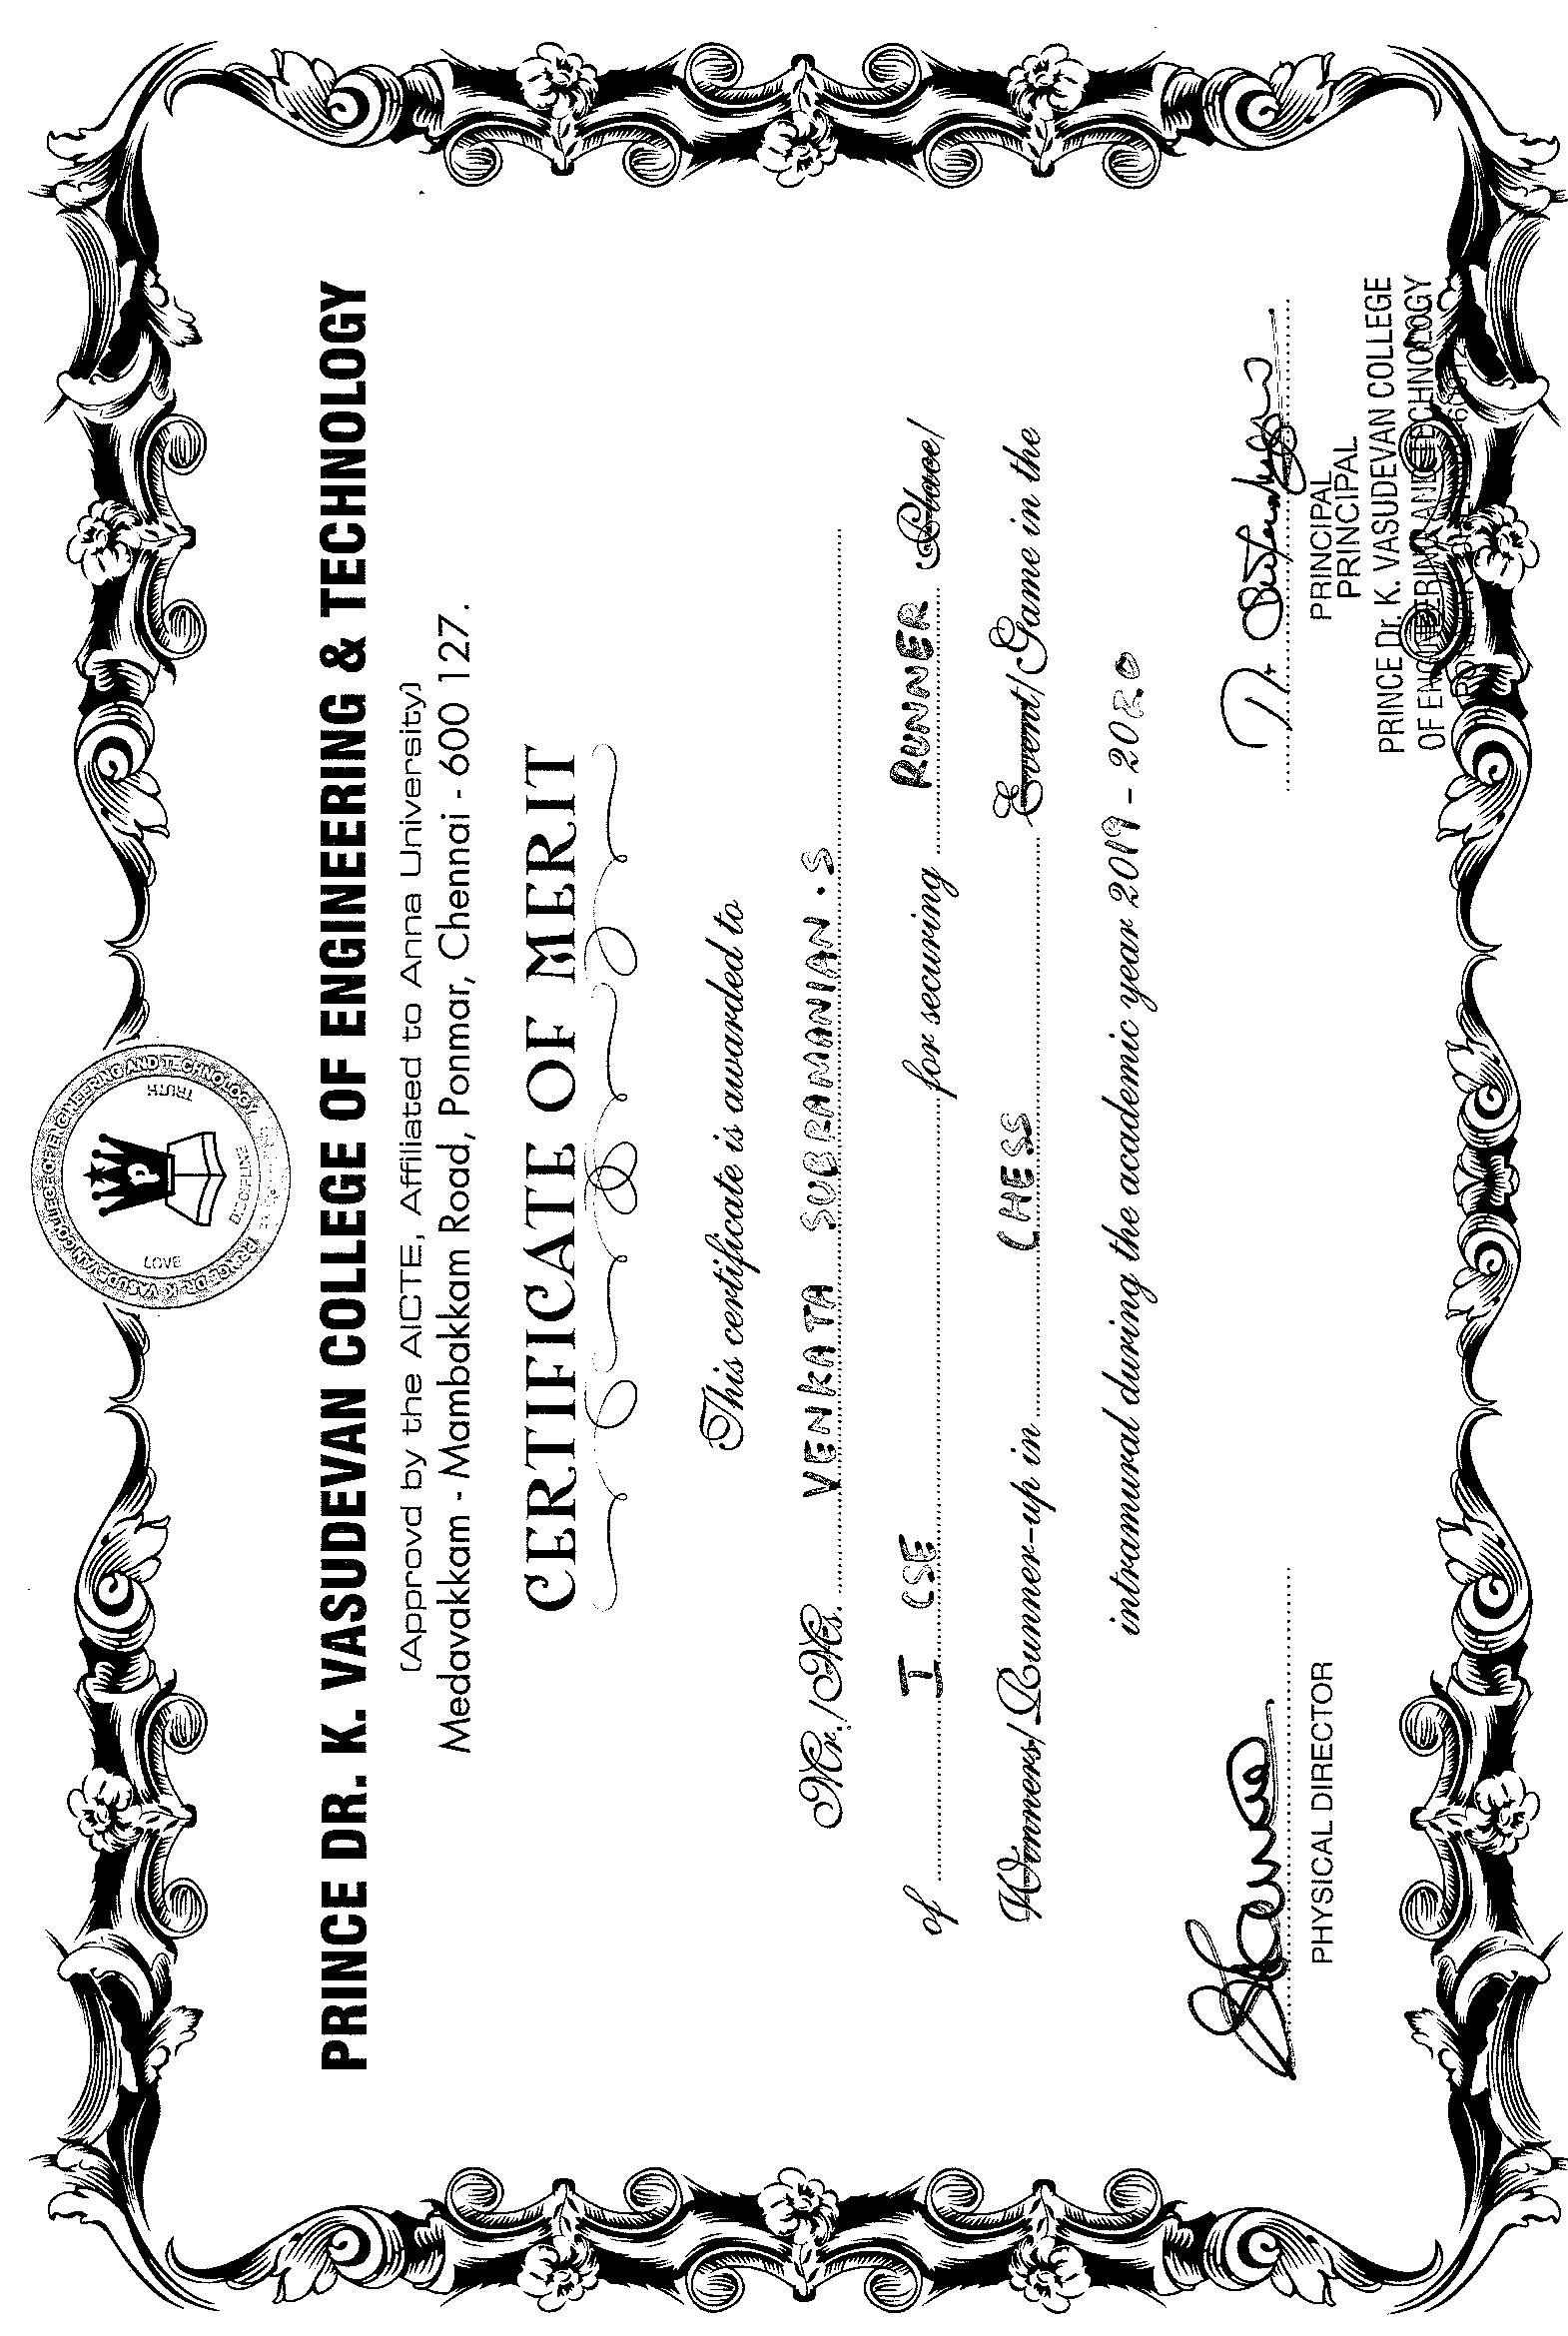 PRINCE DR. K. VASUDEVAN COLLEGE OF ENGINEERING AND TECHNOLOGY
LOVE
TRUTH
DISCIPLINE
P
PRINCE DR. K. VASUDEVAN COLLEGE OF ENGINEERING & TECHNOLOGY
(Approvd by the AICTE, Affiliated to Anna University)
Medavakkam - Mambakkam Road, Ponmar, Chennai - 600 127.
CERTIFICATE OF MERIT
This certificate is awarded to
Mr./Ms. VENKATA SUBRAMANIAN . S
of I CSE for securing RUNNER Place/
Winners/Runner-up in CHESS Event/Game in the
intramural during the academic year 2019 - 2020
PHYSICAL DIRECTOR
PRINCIPAL
PRINCIPAL
PRINCE Dr. K. VASUDEVAN COLLEGE
OF ENGINEERING AND TECHNOLOGY
PONMAR, CHENNAI